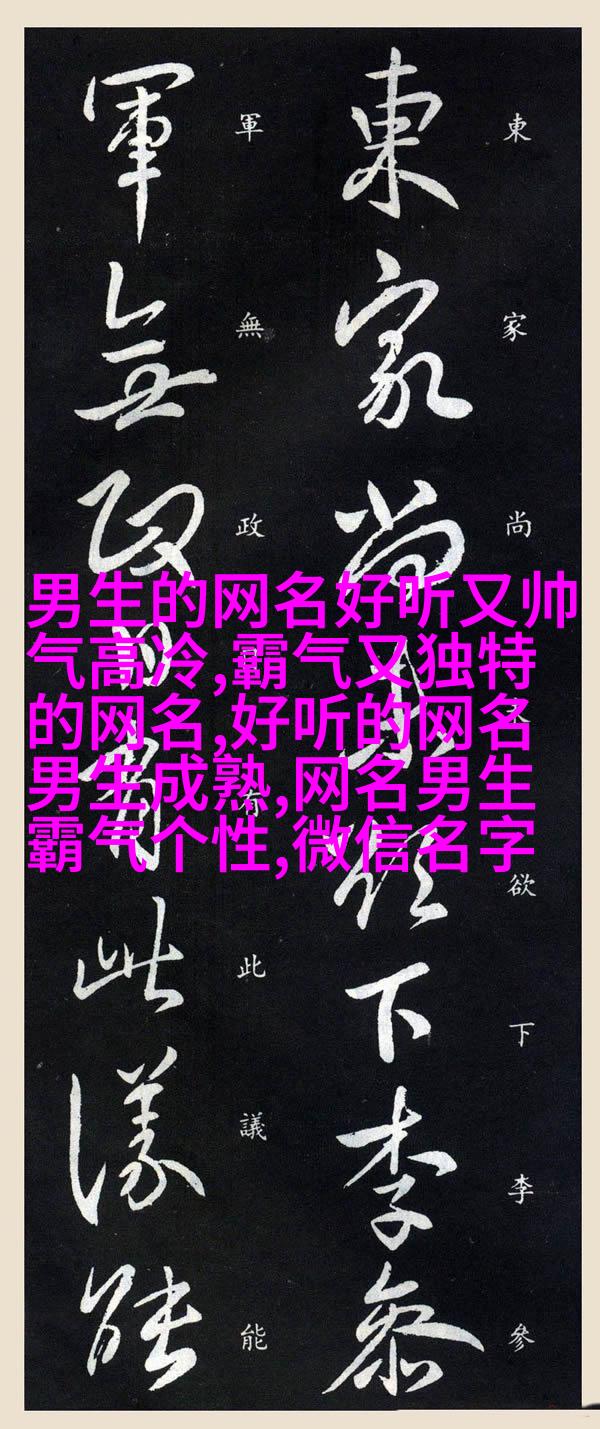 男生的网名好听又帅
气高冷,霸气又独特
的网名,好听的网名
男生成熟,网名男生
霸气个性,微信名字
東家尚欲下李參
東家尚欲下李參
軍無政有此議能
軍無政有此議能